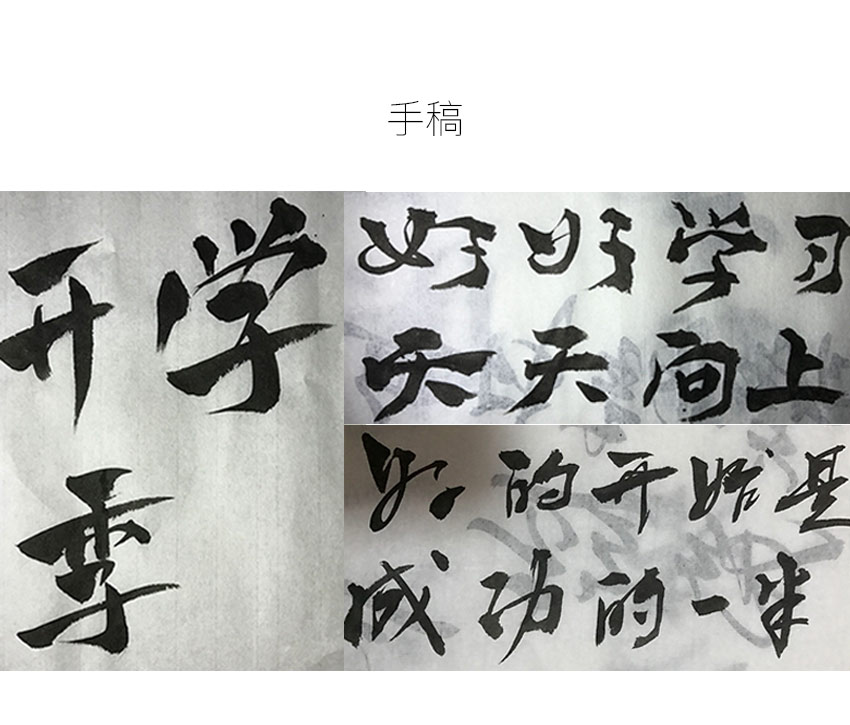 手稿
开学
季
好好学习
天天向上
好的开始是
成功的一半